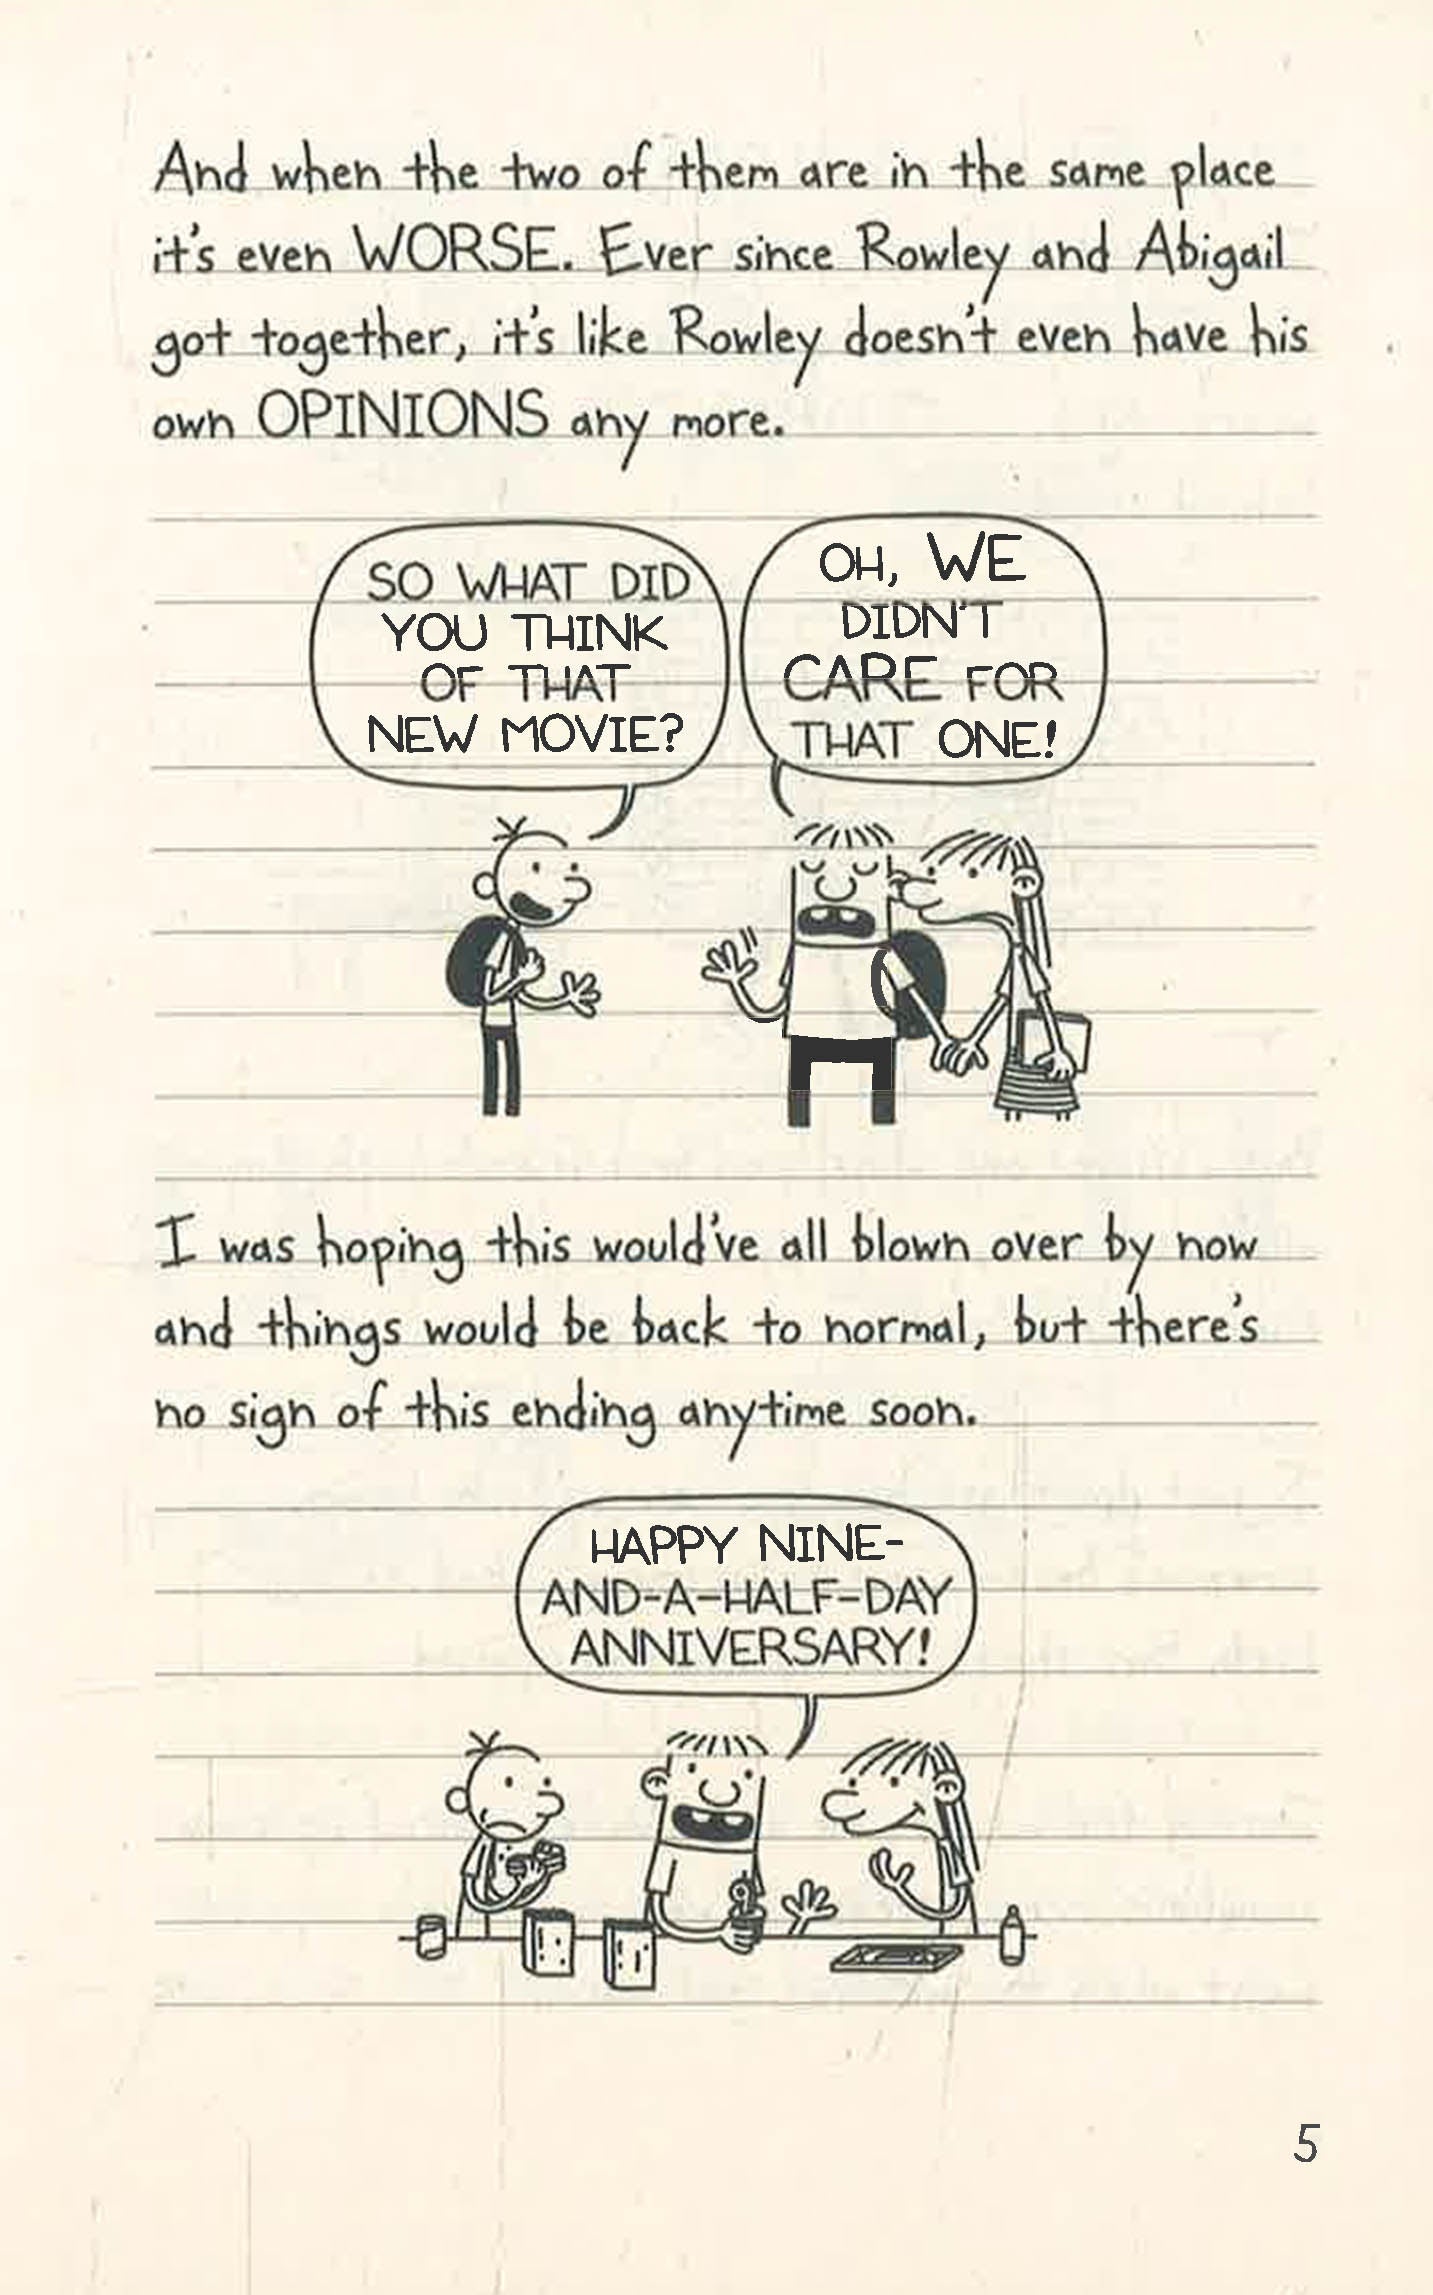 And when the two of them are in the same place
it's even WORSE. Ever since Rowley and Abigail
got together, it's like Rowley doesn't even have his
own OPINIONS any more.
SO WHAT DID
YOU THINK
OF THAT
NEW MOVIE?
OH, WE
DIDN'T
CARE FOR
THAT ONE!
I was hoping this would've all blown over by now
and things would be back to normal, but there's
no sign of this ending anytime soon.
HAPPY NINE-
AND-A-HALF-DAY
ANNIVERSARY!
5